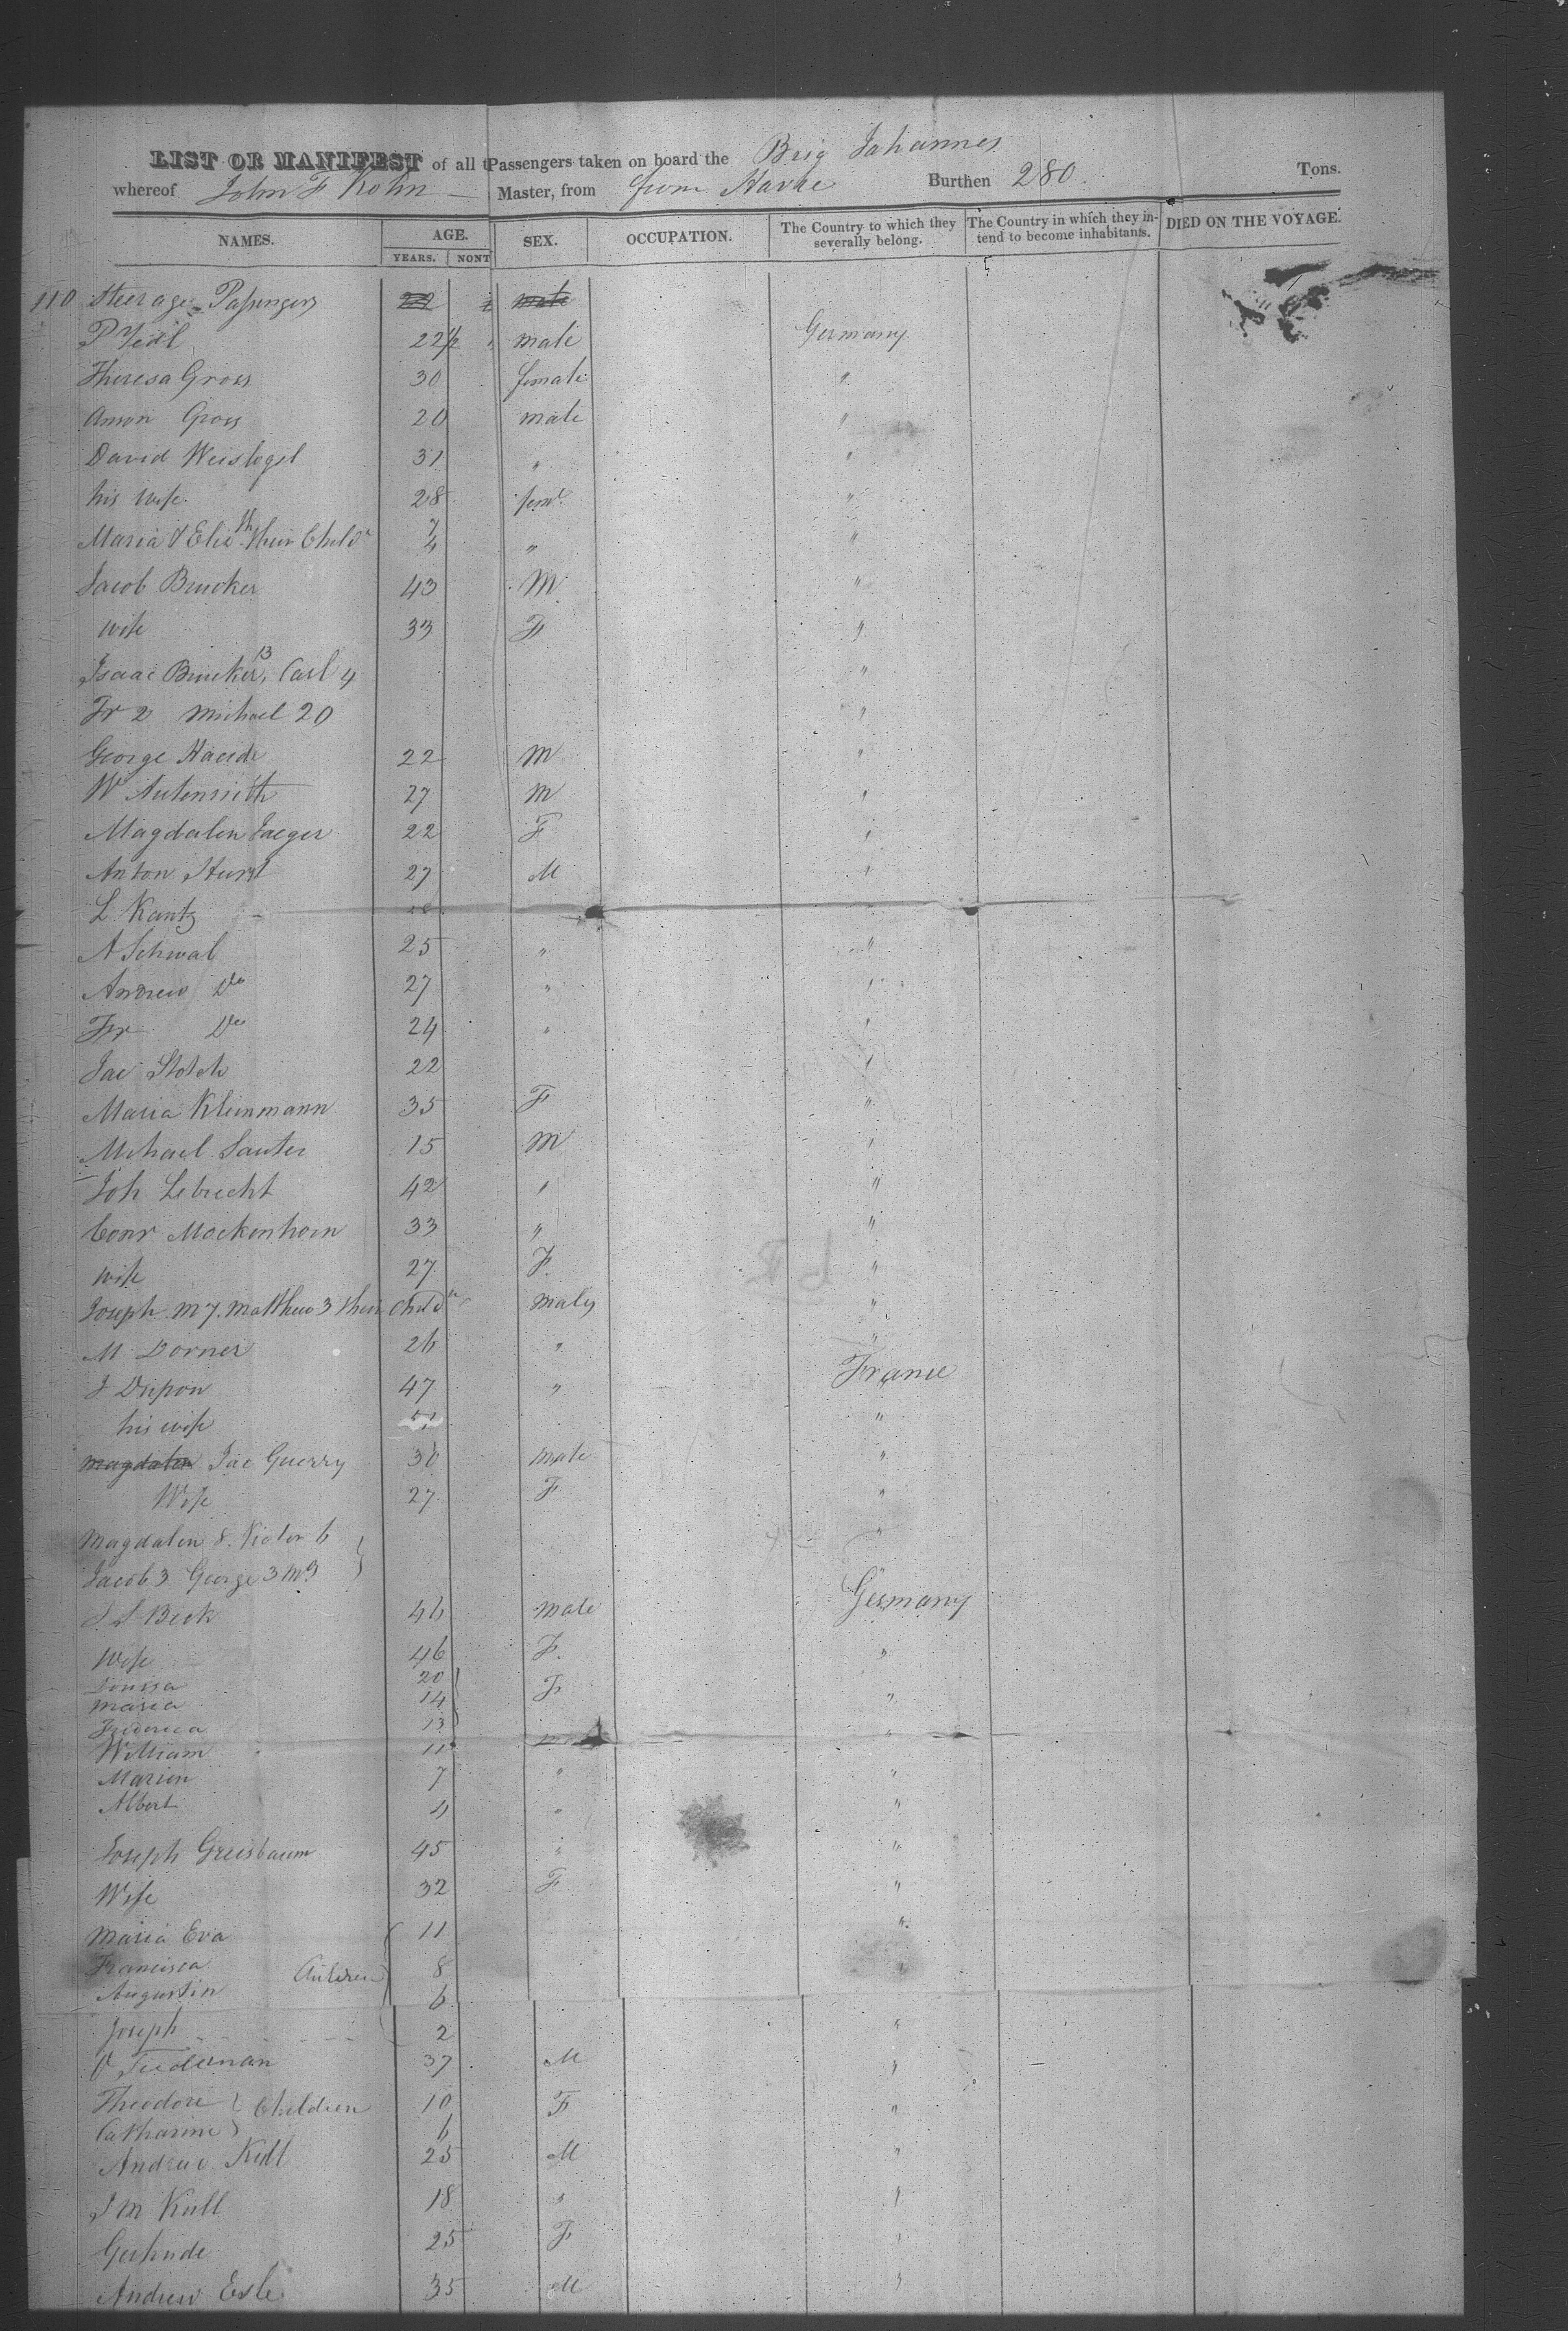 LIST OR MANIFEST of all Passengers taken on board the Brig Johannes
whereof John F Kohn Master, from from Havre Burthen 280 Tons.
NAMES. AGE. SEX. OCCUPATION. The Country to which they severally belong. The Country in which they intend to become inhabitants. DIED ON THE VOYAGE.
YEARS. MONT
110 Steerage Passengers 22 male
P 22 male Germany
Theresa Gross 30 female "
Anson Gross 20 male "
David Weislogel 31 " "
his wife 28 fem "
Maria & Elis their Child 7 4 " "
Jacob Brucker 43 M "
wife 33 F "
Isaac Brucker 13, Carl 4 "
Fr 2 Michael 20 "
George 22 M "
W Autenrieth 27 M "
Magdalen Jaeger 22 F "
Anton Hurst 27 M "
L Kantz
A Schwal 25 " "
Andrew Do 27 " "
Fr Do 24 " "
Jac 22 "
Maria Kleinmann 35 F "
Michael Sauter 15 M "
Joh Lebrecht 42 " "
Conr Mockenhorn 33 " "
wife 27 F "
Joseph M 7. Matthew 3 their Child males "
M Dorner 26 " "
J Dupon 47 " France
his wife "
Magdalen Jac Guerry 30 male "
Wife 27 F "
Magdalen 8. Victor 6 "
Jacob 3 George 3 Ms
Beck 46 male Germany
Wife 46 F "
Louisa 20
Maria 14 F "
Frederica 13 "
William 11
Marien 7 " "
Albert 4 " "
Joseph Greisbaum 45 " "
Wife 32 F "
Maria Eva 11 "
Francisca 8 "
Augustin Children 6
Joseph 2 "
37 M "
Theodore Children 10 F "
Catharine 6
Andrew Kull 25 M "
J M Kull 18 " "
Gertrude 25 F "
Andrew 35 M "